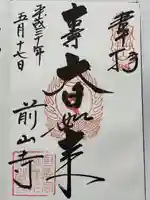 奉拝
大日如来
平成三十年
五月十七日
前山寺